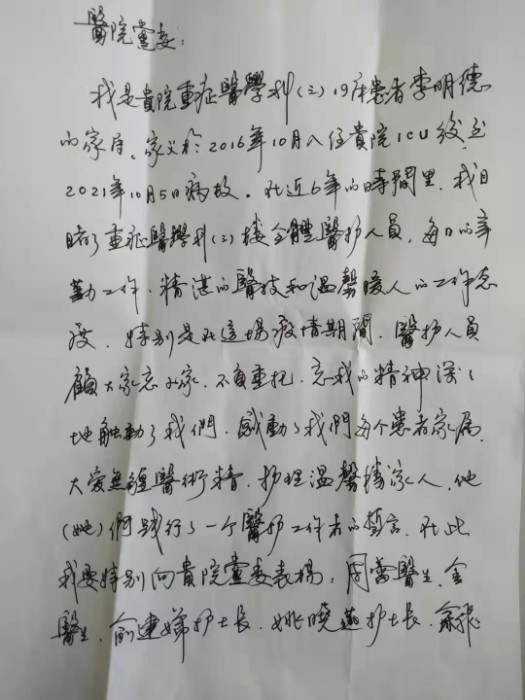 醫院黨委：
我是貴院重症醫學科(三)19床患者李明德
的家属。家父於2016年10月入住貴院ICU後至
2021年10月5日病故。在近6年的時間里，我目
睹了重症醫學科(三)樓全體醫护人員，每日的辛
勤工作、精湛的醫技和温馨暖人的工作态
度，特别是在這場疫情期間，醫护人員
顧大家忘小家，不負重托，忘我的精神深深
地触動了我們，感動了我們每个患者家属，
大愛無疆醫術精，护理温馨勝家人，他
(她)們踐行了一个醫护工作者的誓言，在此
我要特别向貴院黨委表揚，周蕾醫生、金
醫生、俞建娣护士長、姚曉燕护士長、余張